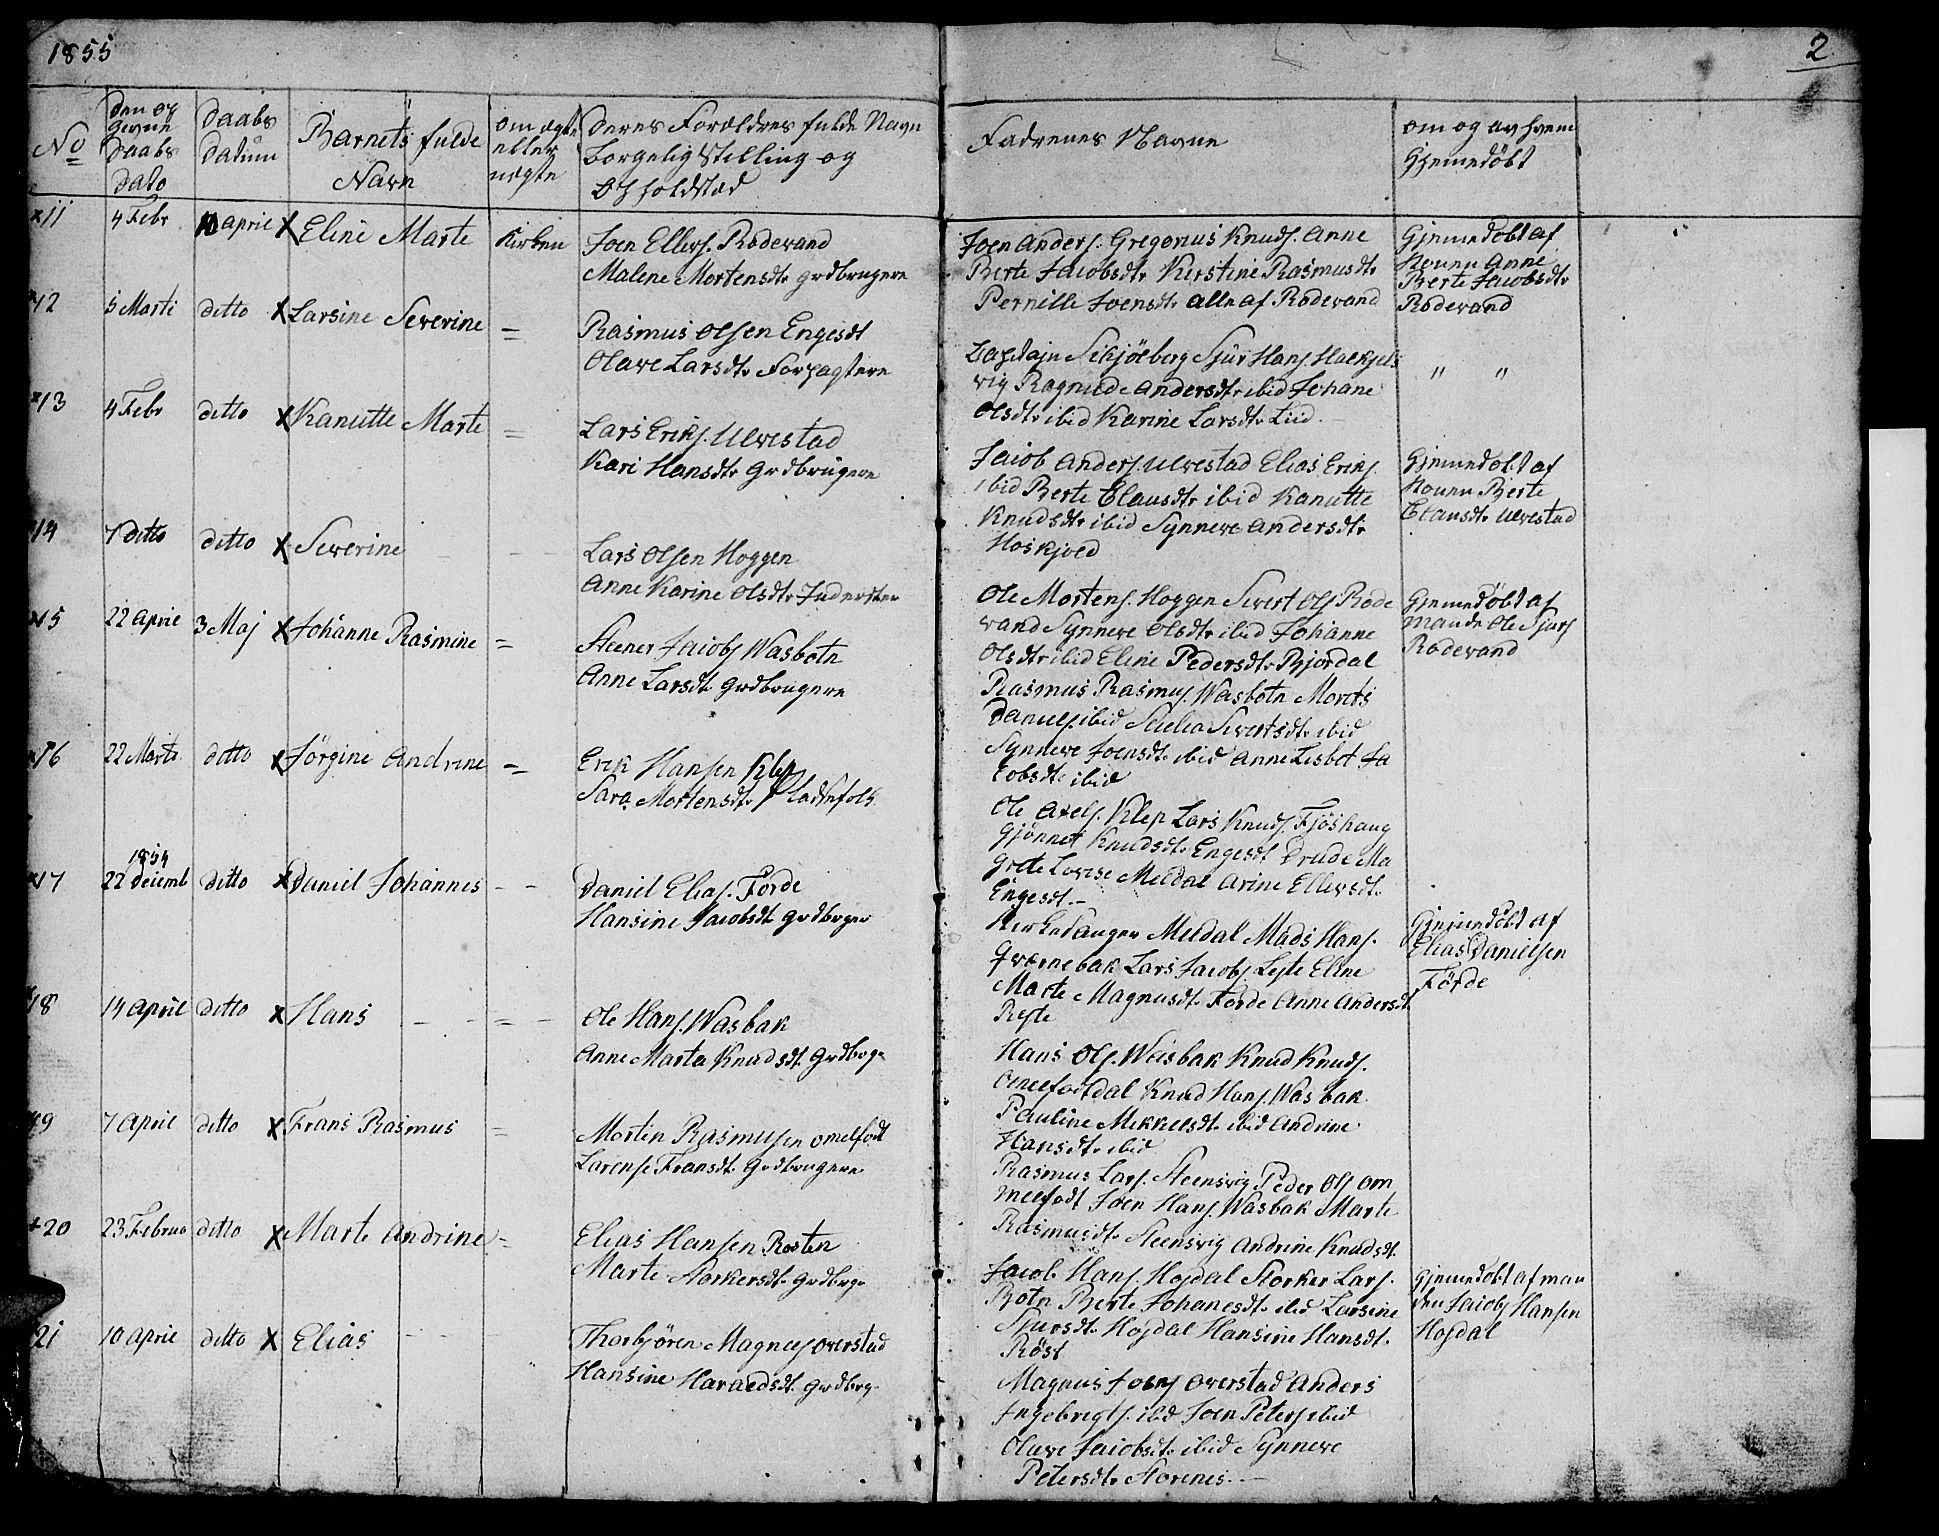 1855
2
No
den og
daabs
dato
Daabs
datum
Barnets fulde
Navn
om ægte
eller
uægte
deres Forældres fulde Navn
borgelig Stelling og
opholdstæd
Fadrenes Navne
om og av hvem
Gjemedöbt
11 4 Febr 10 April X Eline Marte Kirken
Joen Ellevs. Rodevand
Malene Mortensdtr grdbrugere
Joen Anders. Gregorius Knuds. Anne
Berte Jacobsdtr Kirstine Rasmusdtr
Pernille Joensdtr alle af Rodevand
Gjemedöbt af
Konen Anne
Berte Jacobsdtr
Rodevand
12 5 Marti ditto X Larsine Severine =
Rasmus Olsen Engesdt
Olave Larsdtr Forpagtere
Sjur Hans.
Ragnilde Andersdtr ibid Johane
Olsdtr ibid Karine Larsdtr Liid
" "
13 4 Febr ditto X Kanutte Marte =
Lars Eriks. Ulvestad
Kari Hansdtr Grdbrugere
Jacob Anders. Ulvestad Elias Eriks.
ibid Berte Clausdtr ibid Kanutte
Knudsdtr ibid Synneve Andersdtr
Hoskjold
Gjemedöbt af
Konen Berte
Clausdtr Ulvestad
14 7 ditto ditto X Severine
Lars Olsen Hoggen
Anne Karine Olsdtr Inderster
Ole Mortens. Hoggen Sivert Ols Rode
vand Synneve Olsdtr ibid Johanne
Olsdtr ibid Eline Pedersdtr Bjordal
Gjemedöbt af
manden Ole Sjurs
Rodevand
15 22 April 3 Maj X Johanne Rasmine =
Steener Jacobs Wasbotn
Anne Larsdtr Grdbrugere
Rasmus Rasmus. Wasbotn Morits
Daniels. ibid Sivertsdtr ibid
Synneve Joensdtr ibid Anne Lisbet Ja
cobsdtr ibid
16 22 Marti ditto X Jörgine Andrine =
Erik Hansen Klep
Sara Mortensdtr Pladsfolk
Ole Axels. Klep Lars Knuds. Fjöshaug
Gjönnet Knudsdtr Engesdt Drude Ma
grete Lovise Meldal Arine Ellevsdtr
Engesdt. -
17 1854
22 Decemb ditto X Daniel Johannes - -
Daniel Elias. Förde
Hansine Jacobsdtr Grdbrger
Kirkesanger Meldal Mads Hans.
Qværnebak Lars Jacobs Eline
Marte Magnusdtr Förde Anne Andersdtr
Gjemedöbt af
Elias Danielsen
Förde
18 14 April ditto X Hans - - = -
Ole Hans. Wasbak
Anne Marta Knudsdtr Grdbrg.
Hans Ols. Wasbak Knud Knuds.
Knud Hans. Wasbak
Pauline Mikkelsdtr ibid Andrine
Hansdtr ibid
19 7 April ditto X Frans Rasmus =
Morten Rasmusen omelfodt
Larense Fransdtr Grdbrugere
Rasmus Lars. Steensvig Peder Ols om
melfodt Joen Hans. Wasbak Marte
Rasmusdtr Steensvig Andrine Knudsdtr
20 23 Februa ditto X Marte Andrine =
Elias Hansen Rosten
Marte Storkersdtr Grdbrg.
Jacob Hans. Hojdal Storker Lars.
Botn Berte Johanesdtr ibid Larsine
Sjursdtr Hojdal Hansine Hansdtr
Röst
Gjemedöbt af man
den Jacob Hansen
Hojdal
21 10 April ditto X Elias
Thorbjören Magnus. Overstad
Hansine Haraldsdtr Grdbrg.
Magnus Joens Overstad Anders
Ingebrigts. ibid Joen Peters ibid
Oluve Jacobsdtr ibid Synneve
Petersdtr Storenes. -